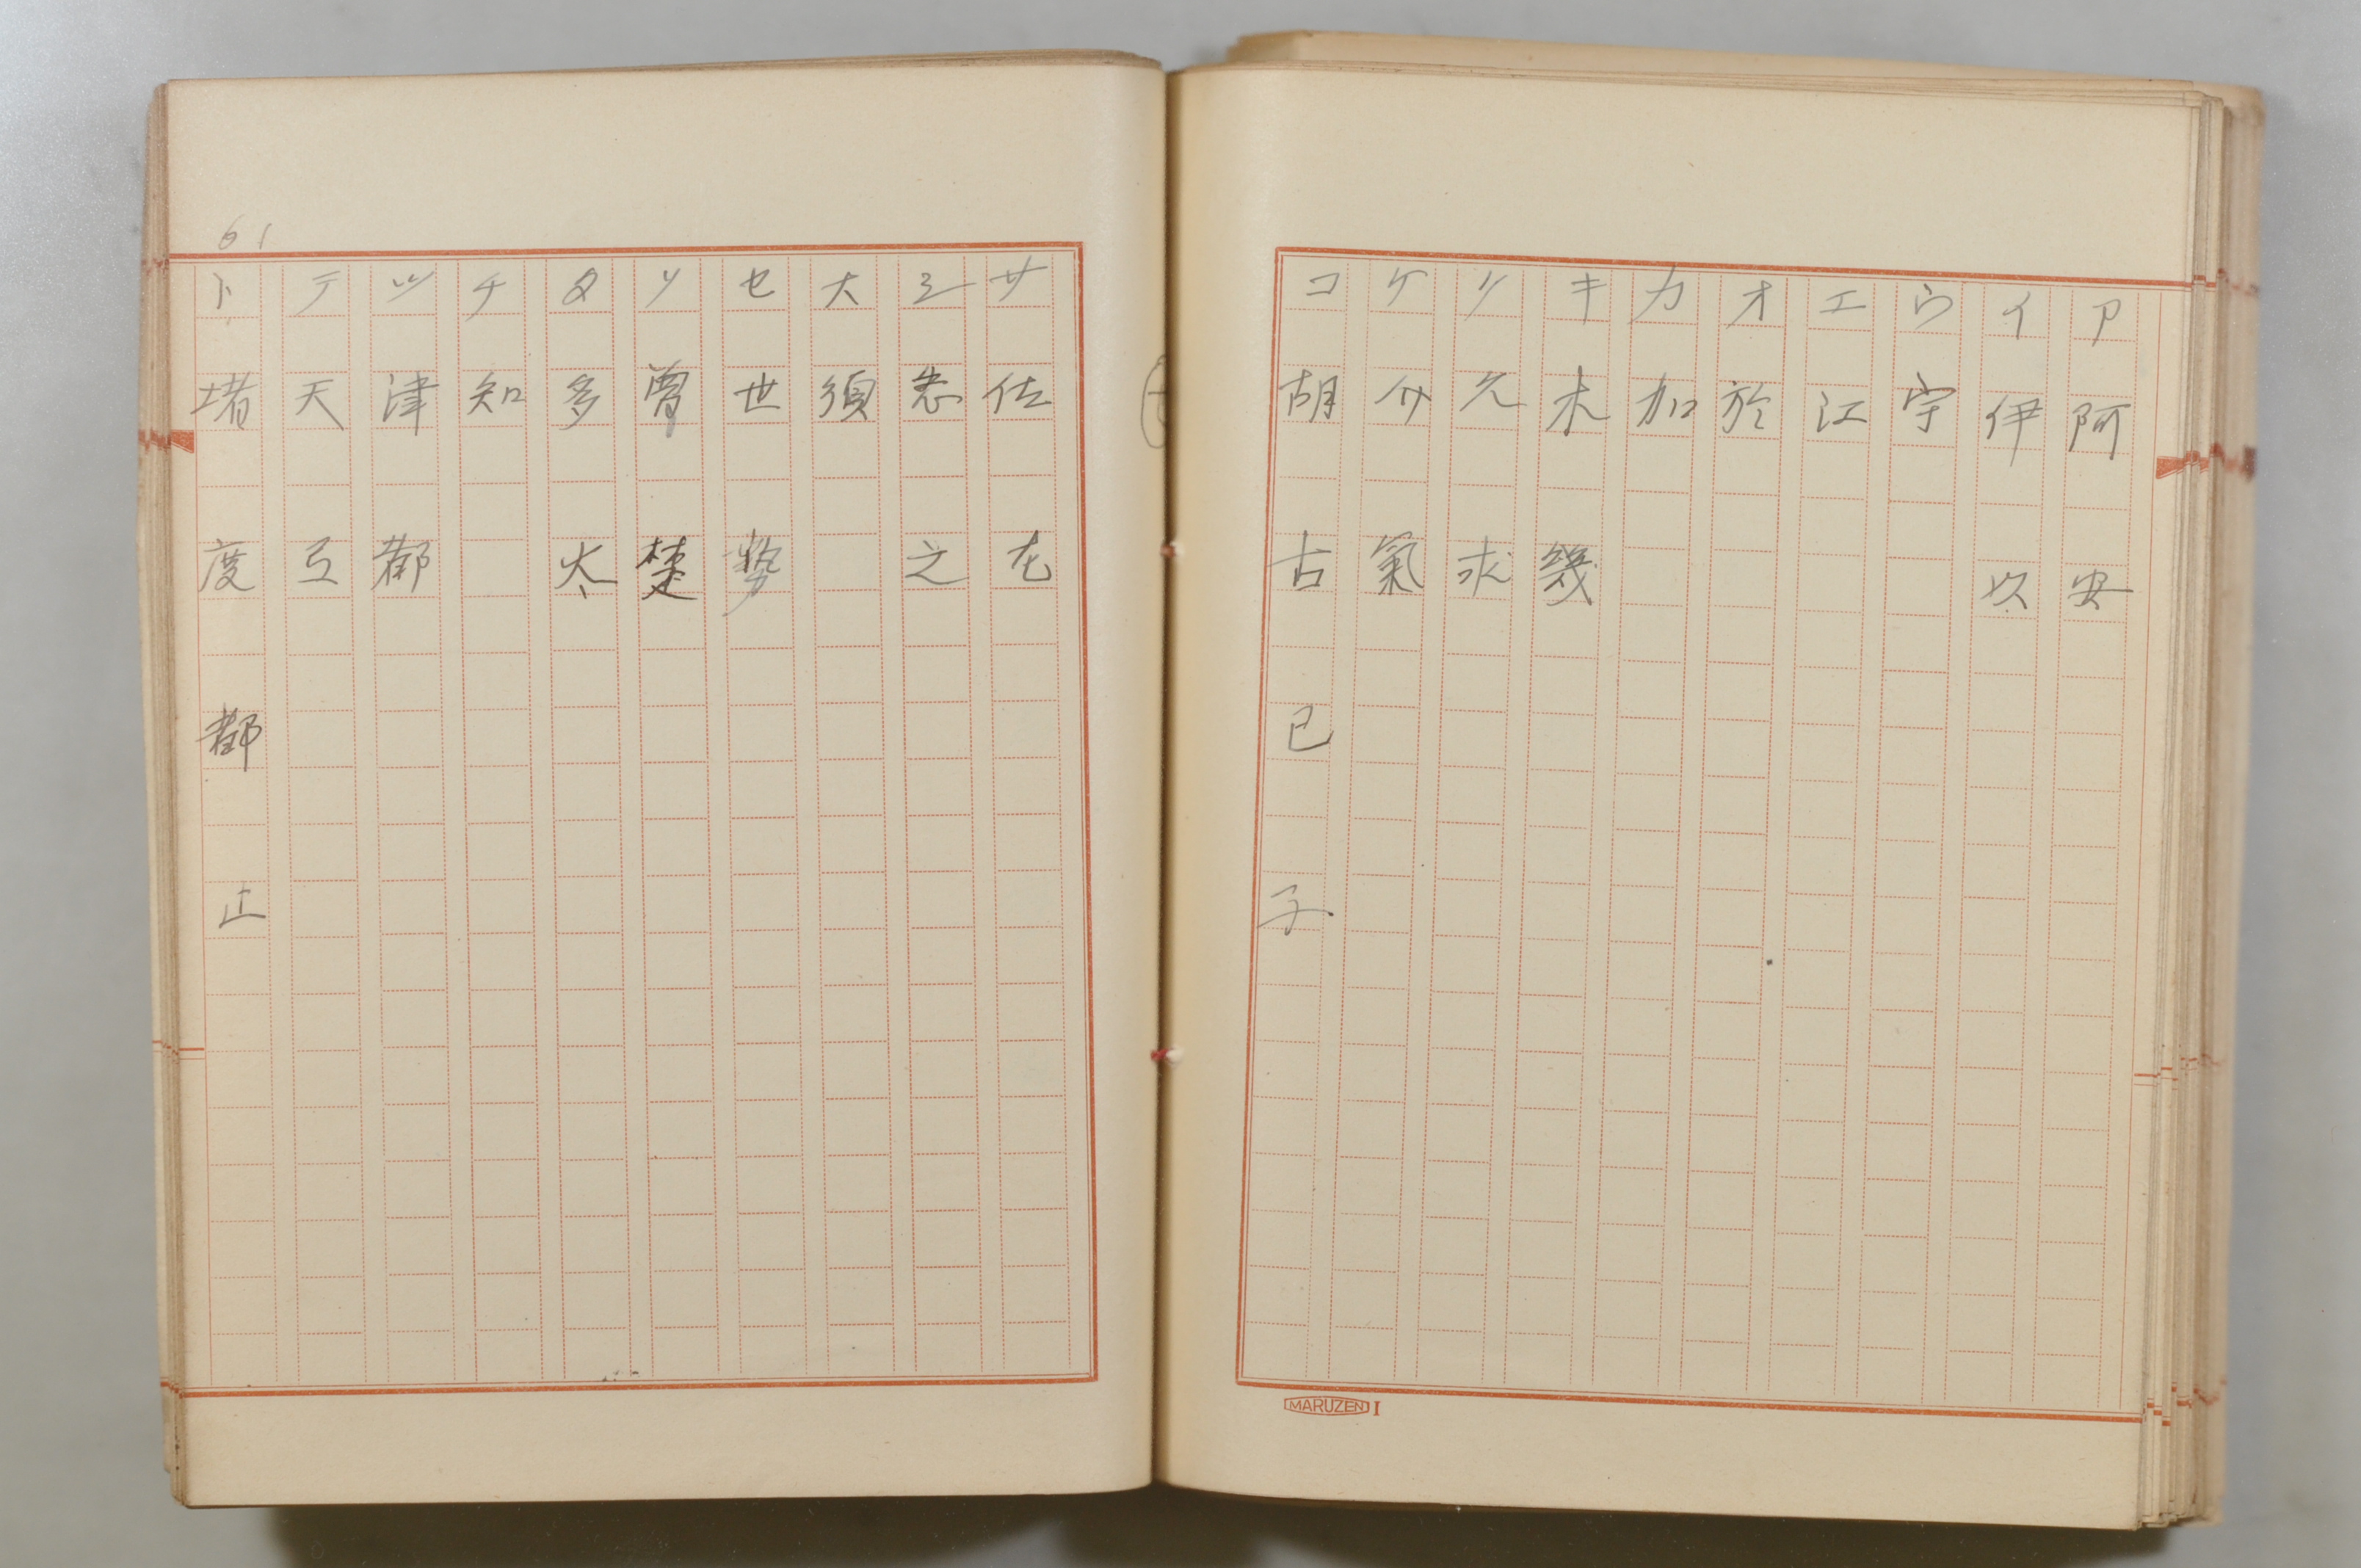 ア 阿 安
イ 伊 以
ウ 宇
エ 江
オ 於
カ 加
キ 木 幾
ク 久 求
ケ 介 氣
コ 胡 古 已 子
MARUZEN I
サ 佐 左
シ 志 之
大 須
セ 世 勢
ソ 曽 楚
タ 多 太
チ 知
ツ 津 都
テ 天 弖
ト 堵 度 都 止
61